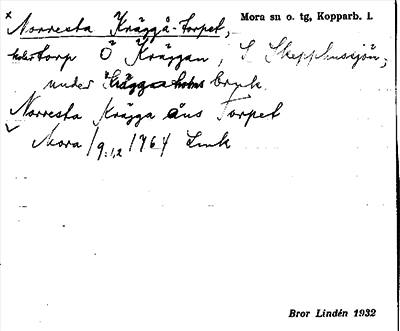 × Norresta Kräggå-torpet, Mora sn o. tg, Kopparb. l.
torp Ö Kräggan, S Skepphussjön,
under bruk.
Norresta Krägga åns Torpet
Mora /9:1,2 1764 Lmk
Bror Lindén 1932